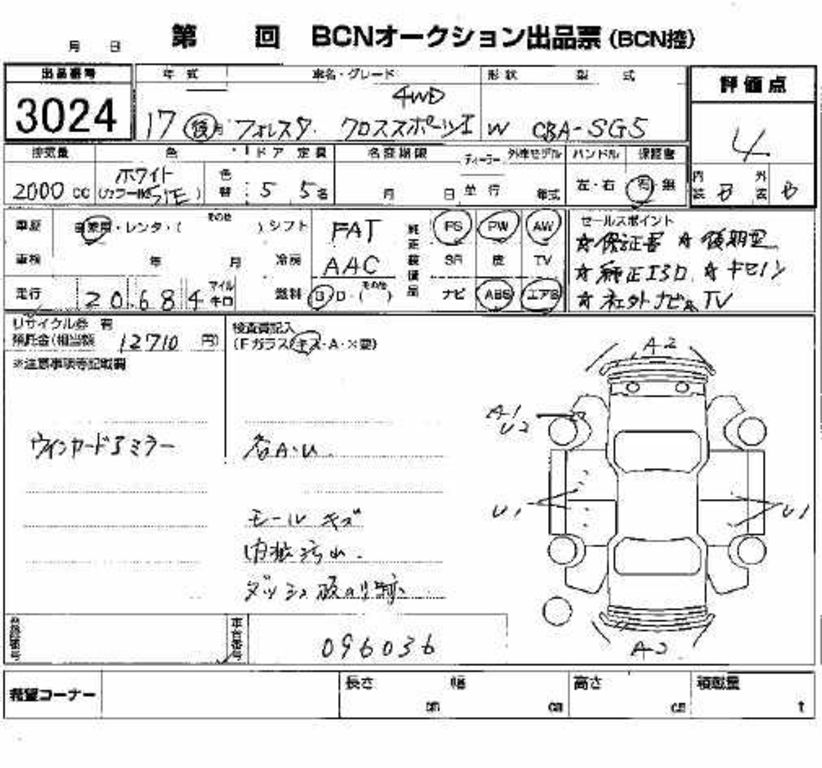 月 日 第 回 BCNオークション出品票(BCN控)
出品番号 年式 車名・グレード 形状 型式 評価点
3024 17 後 月 フォレスタ クロススポーツI 4WD W CBA-SG5 4
排気量 色 色替 ドア 定員 名変期限 ディーラー 外車モデル ハンドル 保証書 内装 外装
2000 cc ホワイト (カラーNo. 51E) 5 5名 月 日 単行 年式 左・右 有 無 B B
車歴 自家用・レンタ・( その他 ) シフト FAT 純正装備品 PS PW AW セールスポイント
車検 年 月 冷房 AAC SR 皮 TV ☆保証書 ☆後期型
☆純正ISD ☆キセノン
走行 20,684 マイル キロ 燃料 G D・( その他 ) ナビ ABS エアB ☆社外ナビ&TV
リサイクル券 有
預託金(相当額 12710 円) 検査員記入
(Fガラス(キズ・A・×要)
※注意事項等記載欄
A2
A1
U2
ウインカードアミラー 各A・U
U1 U1
モールキズ
内装汚れ.
ダッシュ 跡
登録番号 車台番号 096036 A2
希望コーナー 長さ cm 幅 cm 高さ cm 積載量 t